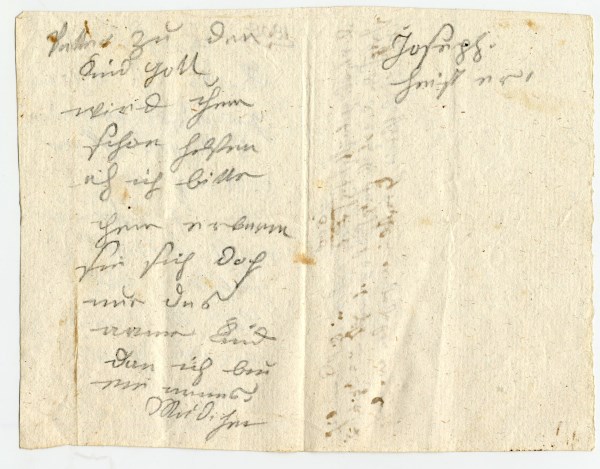 Vatter zu den
Kind Gott
wird ihm
schon helfen
ach ich bitte
ihm erbarm
sie sich doch
nur das
arme Kind
dan ich bin
ein armes
Mädchen
Joseph.
heist er,